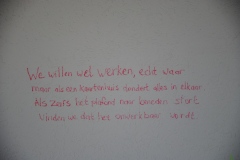 We willen wel werken, echt waar
maar als een kaartenhuis dondert alles in elkaar
Als zelfs het plafond naar beneden stort
Vinden we dat het onwerkbaar wordt